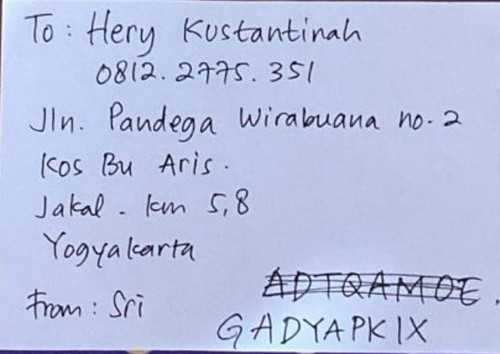 To: Hery Kustantinah
0812.2775.351
Jln. Pandega Wirabuana no.2
Kos Bu Aris.
Jakal - km 5,8
Yogyakarta
ADTQAMOE.
From: Sri
GADYAPKIX